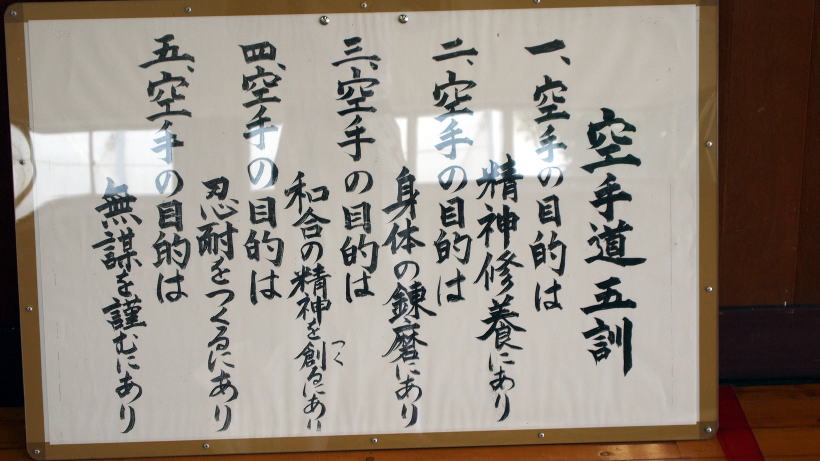 空手道五訓
一、空手の目的は
精神修養にあり
二、空手の目的は
身体の錬磨にあり
三、空手の目的は
和合の精神を創るにあり
つく
四、空手の目的は
忍耐をつくるにあり
五、空手の目的は
無謀を謹むにあり